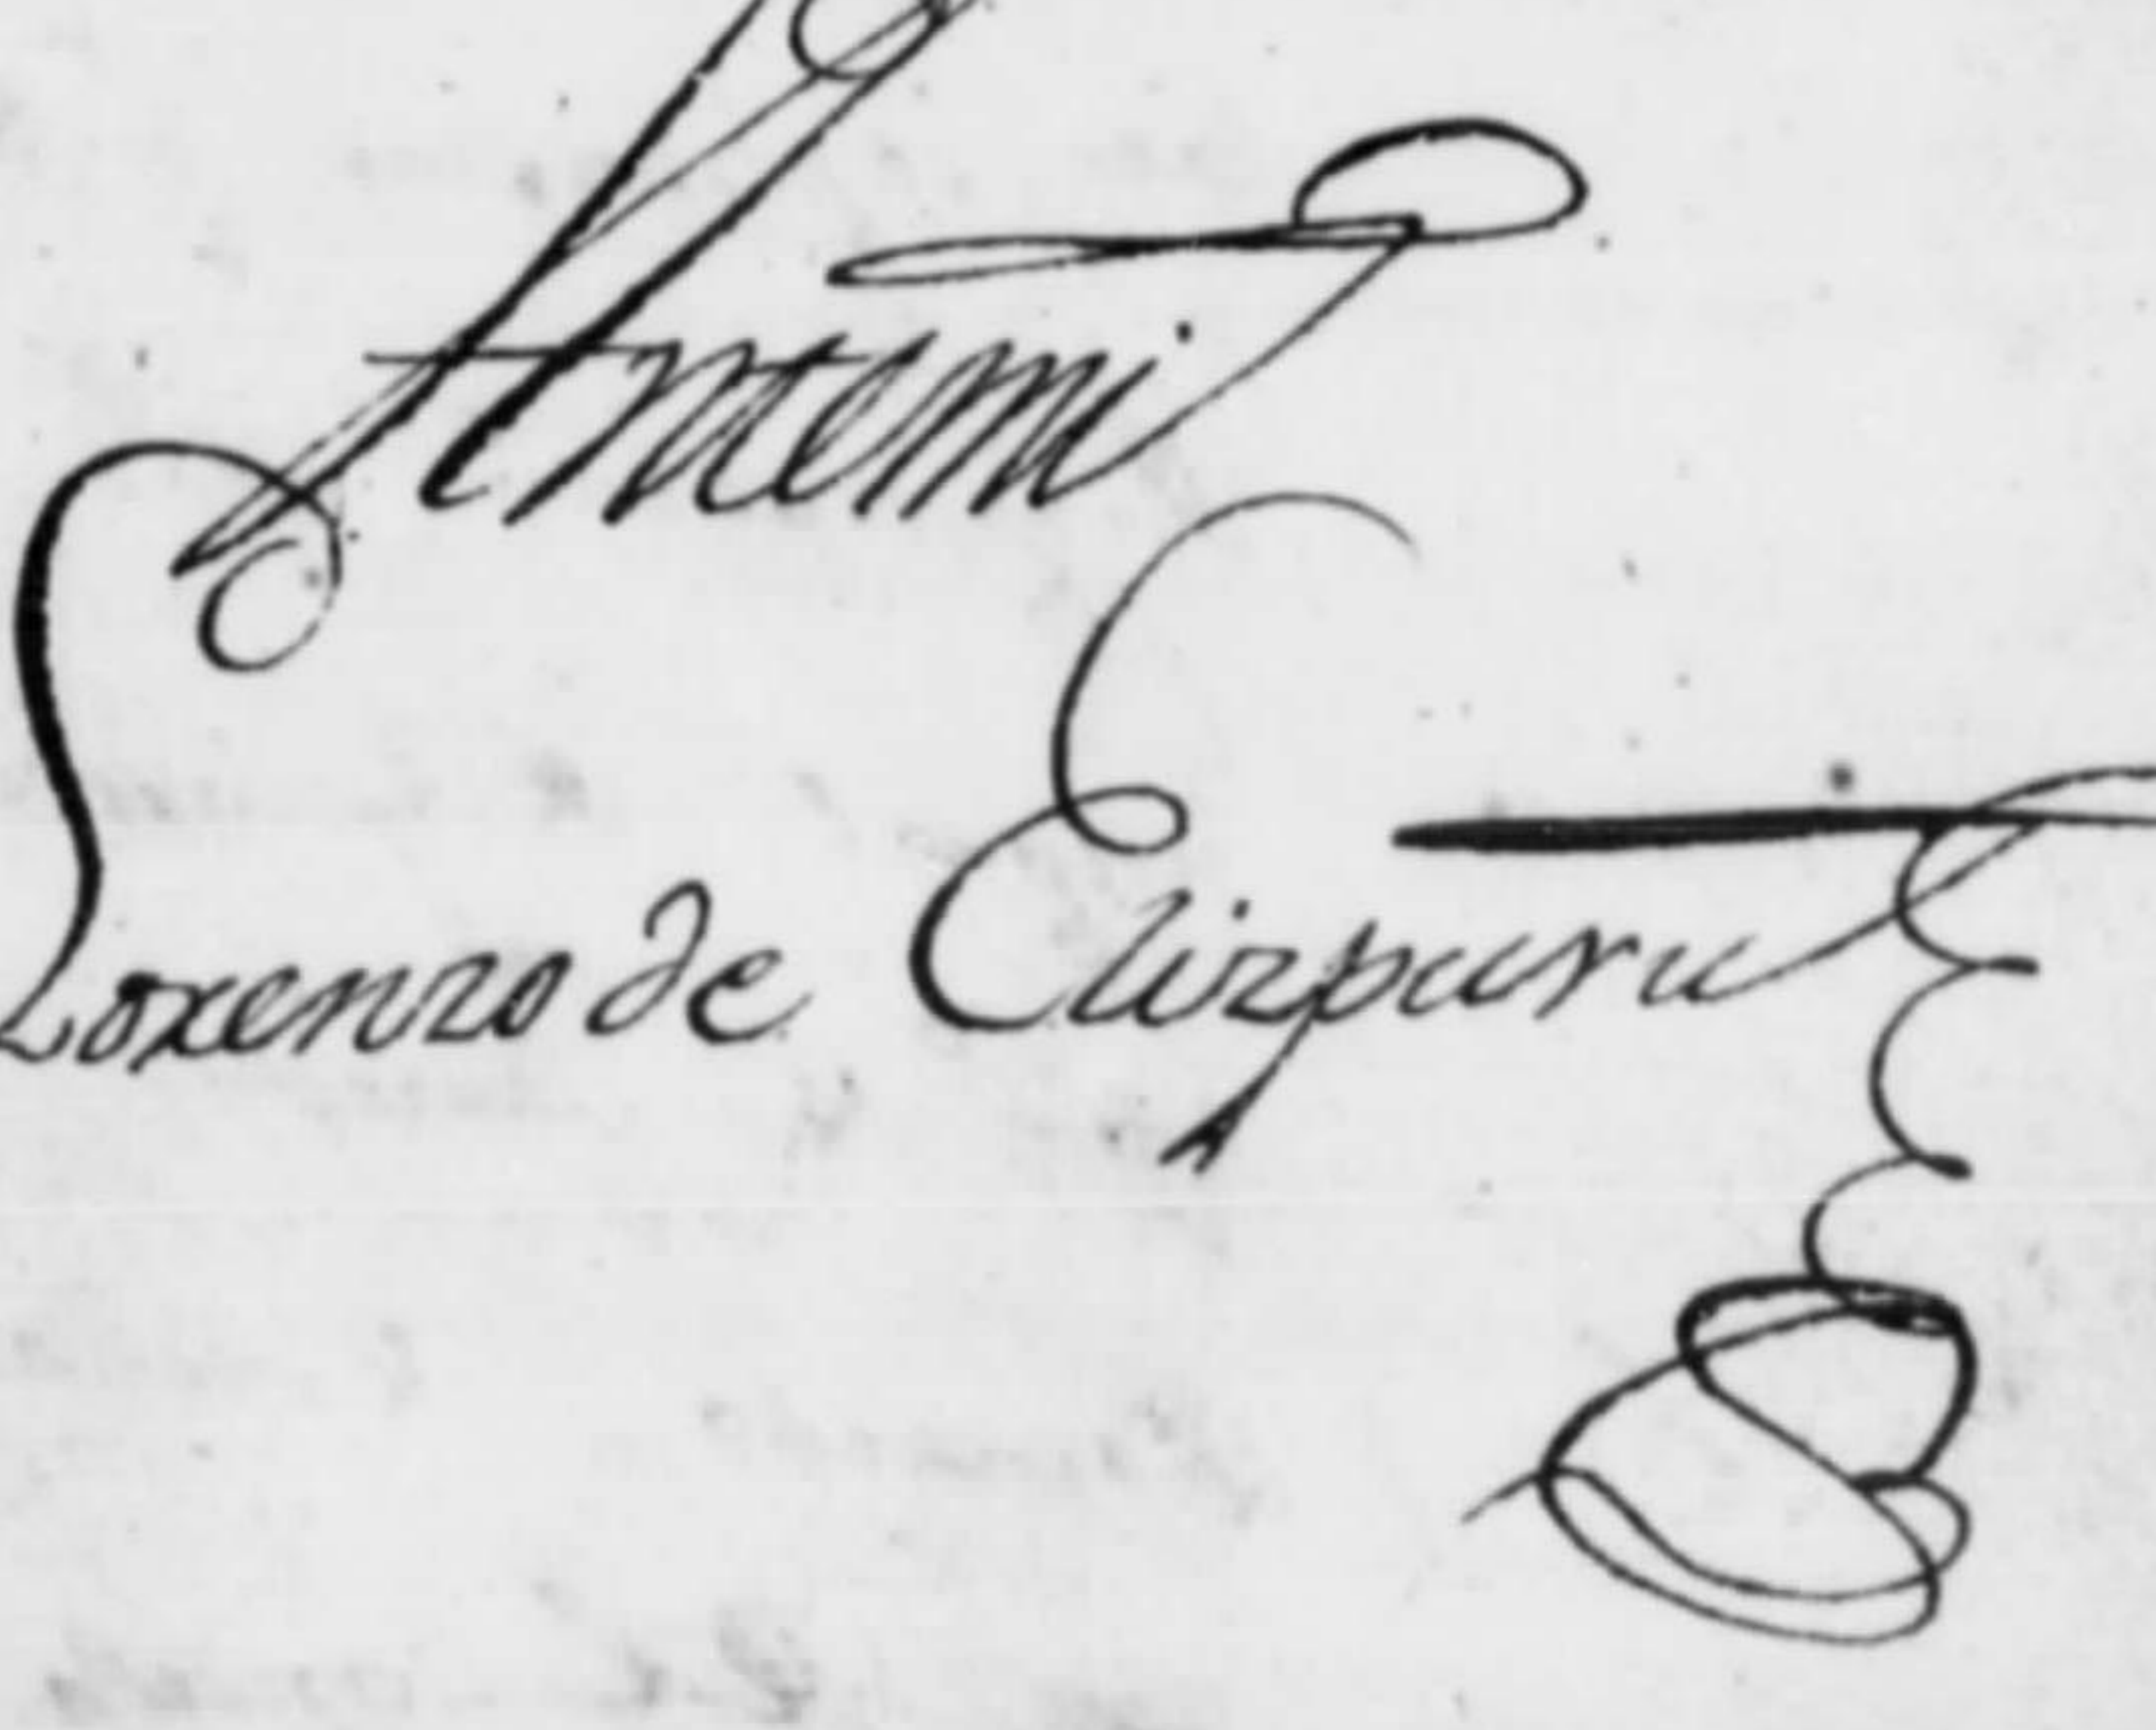 Antemi
Lorenzo de Elizpuru